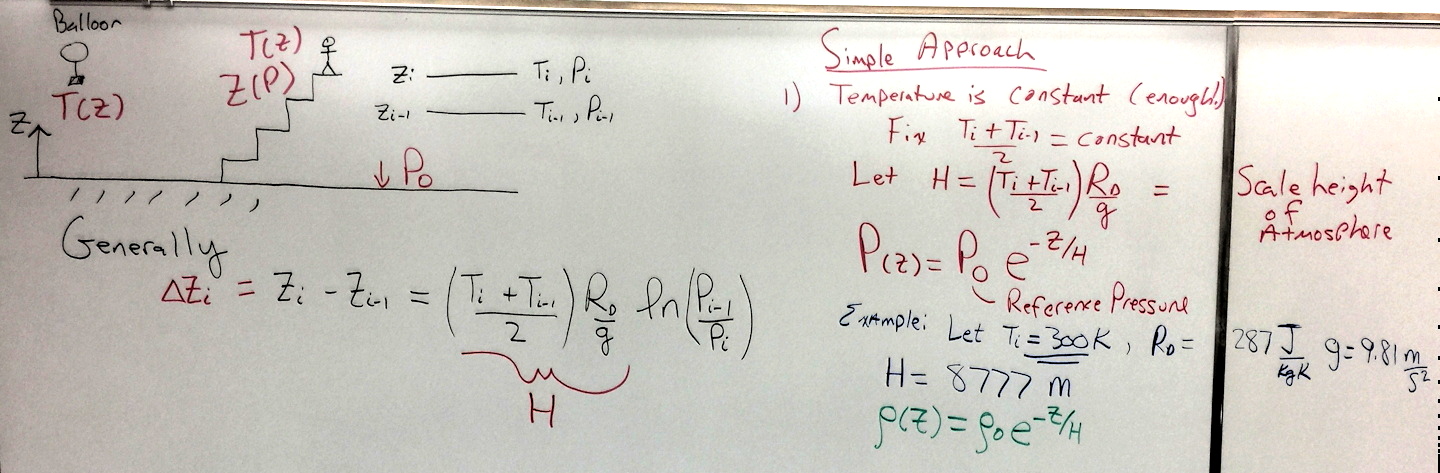 Balloon
T(z)
z
T(z)
z(P)
zi Ti, Pi
zi-1 Ti-1, Pi-1
↓ P0
Generally
Δzi = zi - zi-1 = (Ti + Ti-1 / 2) RD/g ln(Pi-1/Pi)
H
Simple Approach
1) Temperature is constant (enough!)
Fix Ti + Ti-1 / 2 = constant
Let H = (Ti + Ti-1 / 2) RD/g = Scale height of Atmosphere
P(z) = P0 e^-z/H
Reference Pressure
Example: Let Ti = 300K, RD = 287 J/kgK g = 9.81 m/s²
H = 8777 m
ρ(z) = ρ0 e^-z/H